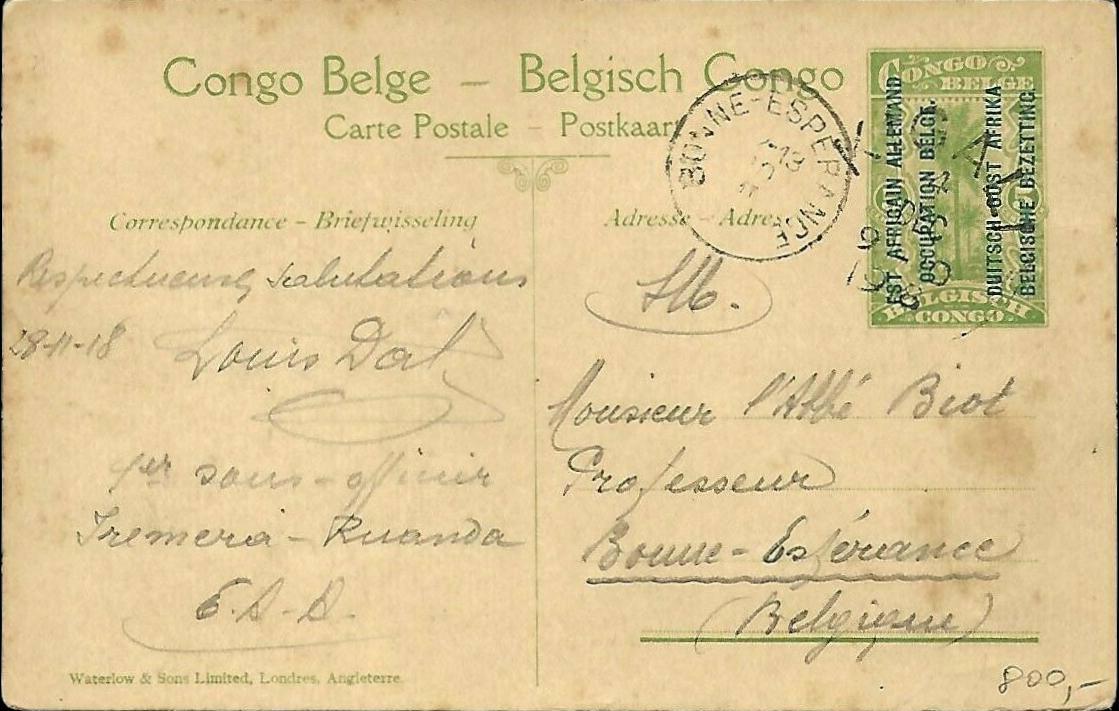 Congo Belge – Belgisch Congo
Carte Postale – Postkaart
Correspondance – Briefwisseling
Adresse – Adres
CONGO
BELGE
BELGISCH
CONGO
EST AFRICAIN ALLEMAND
OCCUPATION BELGE.
DUITSCH-OOST AFRIKA
BELGISCHE BEZETTING.
BONNE-ESPERANCE
Respectueuses salutations
28-11-18
Louis
1er sous-officier
Ruanda
S.M.
Monsieur l'Abbé Biot
Professeur
Bonne-Espérance
(Belgique)
Waterlow & Sons Limited, Londres, Angleterre.
800,-